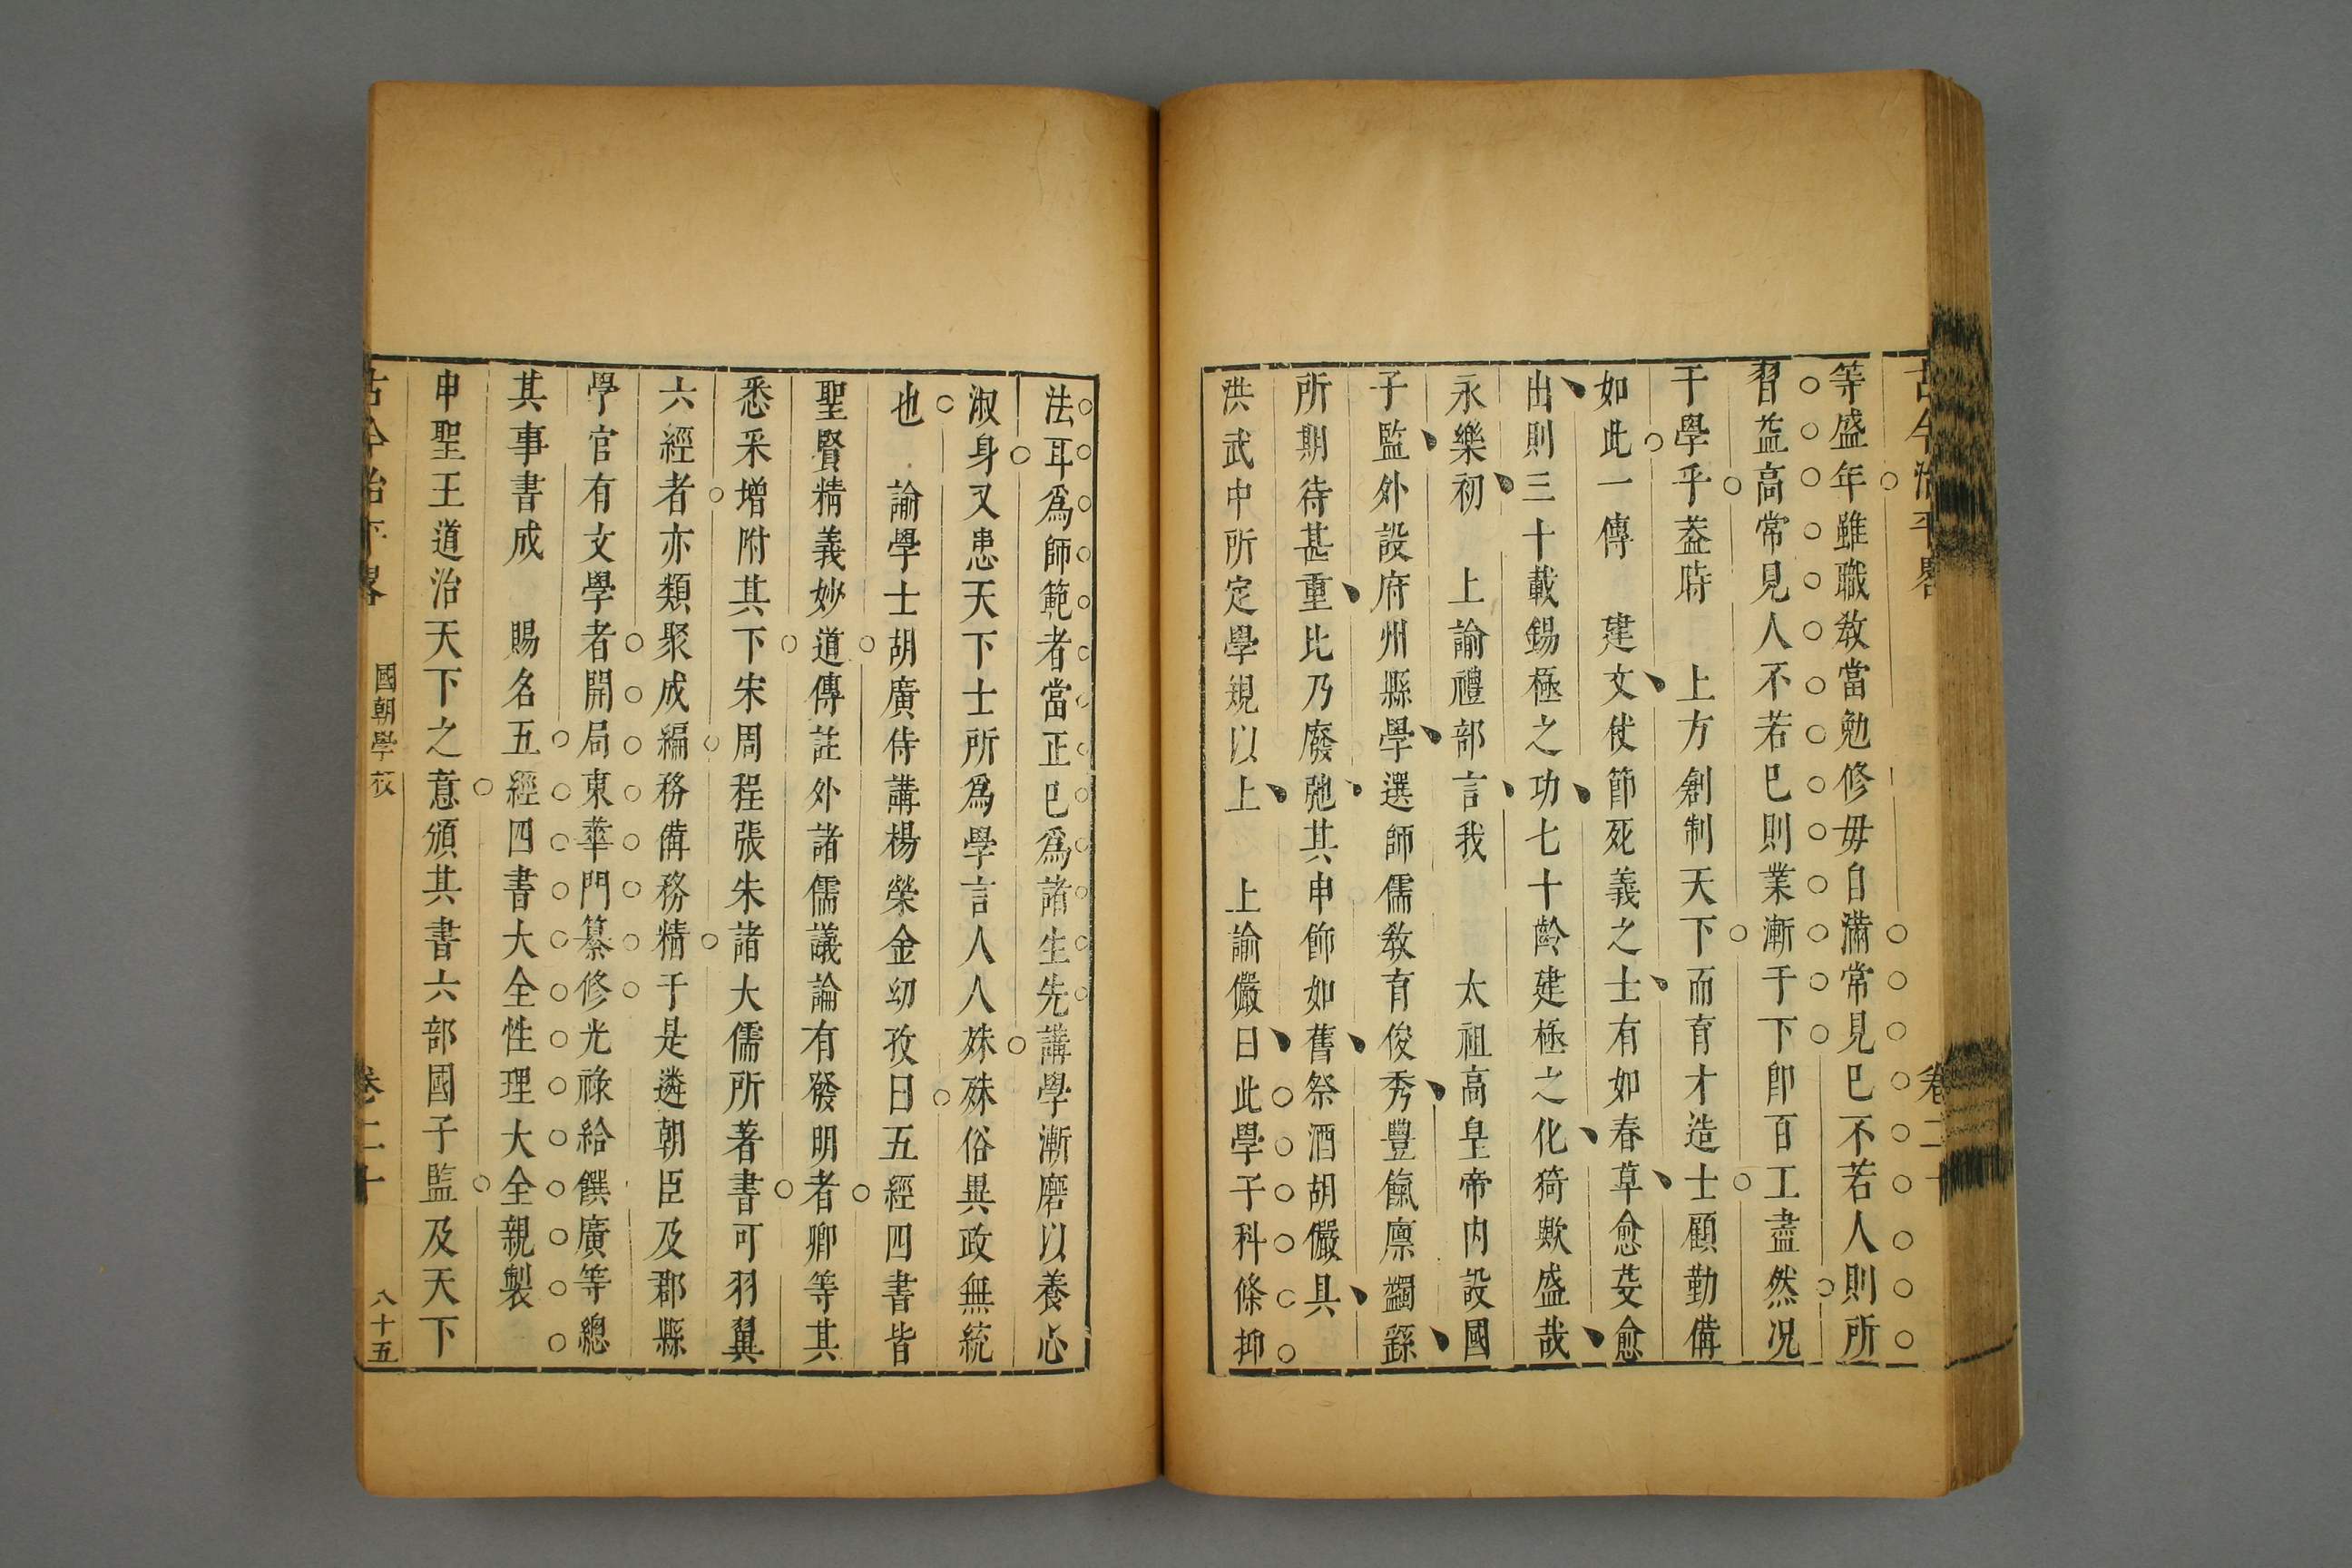 古今治平畧 卷二十
等盛年雖職敎當勉修毋自滿常見巳不若人則所
習益高常見人不若巳則業漸于下卽百工盡然况
于學乎葢時 上方創制天下而育才造士顧勤備
如此一傳 建文仗節死義之士有如春草愈芟愈
出則三十載錫極之功七十齡建極之化猗歟盛哉
永樂初 上諭禮部言我 太祖高皇帝内設國
子監外設府州縣學選師儒敎育俊秀豐餼廪蠲繇
所期待甚重比乃廢弛其申飭如舊祭酒胡儼具
洪武中所定學規以上 上諭儼曰此學子科條抑
法耳爲師範者當正巳爲諸生先講學漸磨以養心
淑身又患天下士所爲學言人人殊殊俗異政無統
也 諭學士胡廣侍講楊榮金幼孜曰五經四書皆
聖賢精義妙道傳註外諸儒議論有發明者卿等其
悉采增附其下宋周程張朱諸大儒所著書可羽翼
六經者亦類聚成編務備務精于是遴朝臣及郡縣
學官有文學者開局東華門纂修光祿給饌廣等總
其事書成 賜名五經四書大全性理大全親製
申聖王道治天下之意頒其書六部國子監及天下
古今治平畧 國朝學校 卷二十 八十五